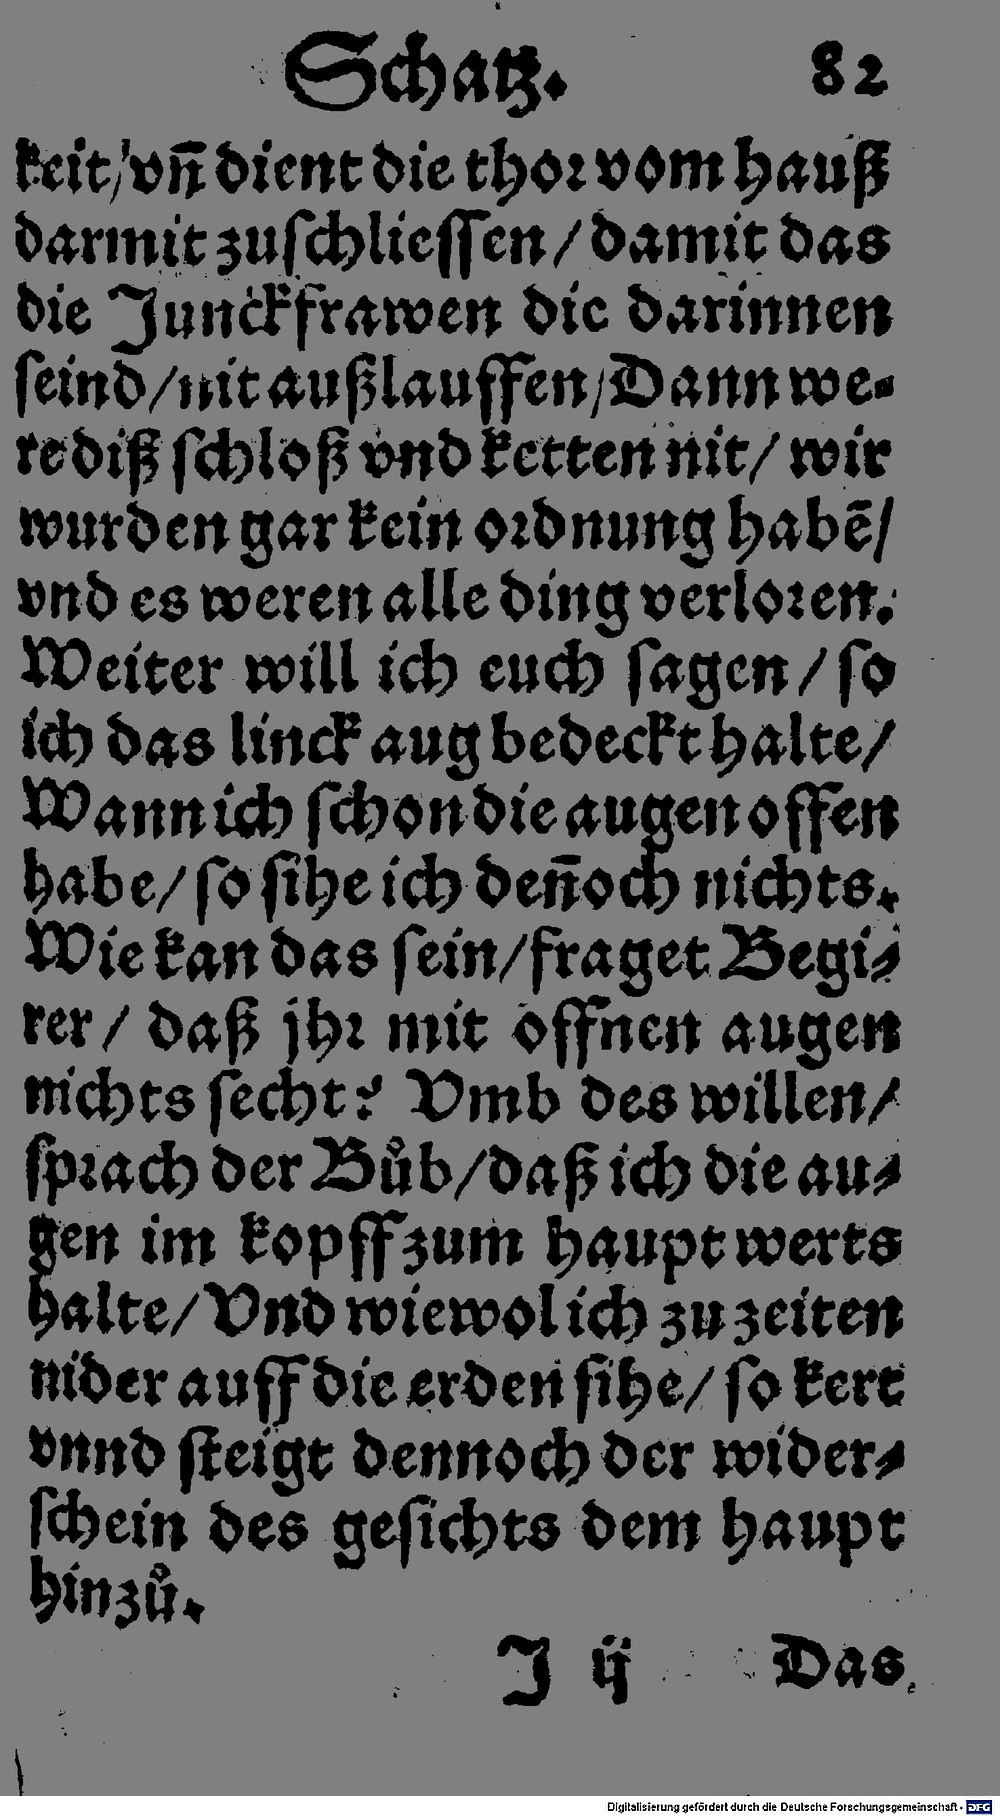 Schatz. 82
keit/ vn̄ dient die thor vom hauß
darmit zuschliessen/ damit das
die Junckfrawen die darinnen
seind/ nit außlauffen/ Dann we-
re diß schloß vnd ketten nit/ wir
wurden gar kein ordnung habē/
vnd es weren alle ding verloren.
Weiter will ich euch sagen/ so
ich das linck aug bedeckt halte/
Wann ich schon die augen offen
habe/ so sihe ich den̄och nichts.
Wie kan das sein/ fraget Begi-
rer/ daß jhr mit offnen augen
nichts secht? Vmb des willen/
sprach der Bůb/ daß ich die au-
gen im kopff zum haupt werts
halte/ Vnd wiewol ich zu zeiten
nider auff die erden sihe/ so kert
vnnd steigt dennoch der wider-
schein des gesichts dem haupt
hinzů.
J ij Das
Digitalisierung gefördert durch die Deutsche Forschungsgemeinschaft - DFG